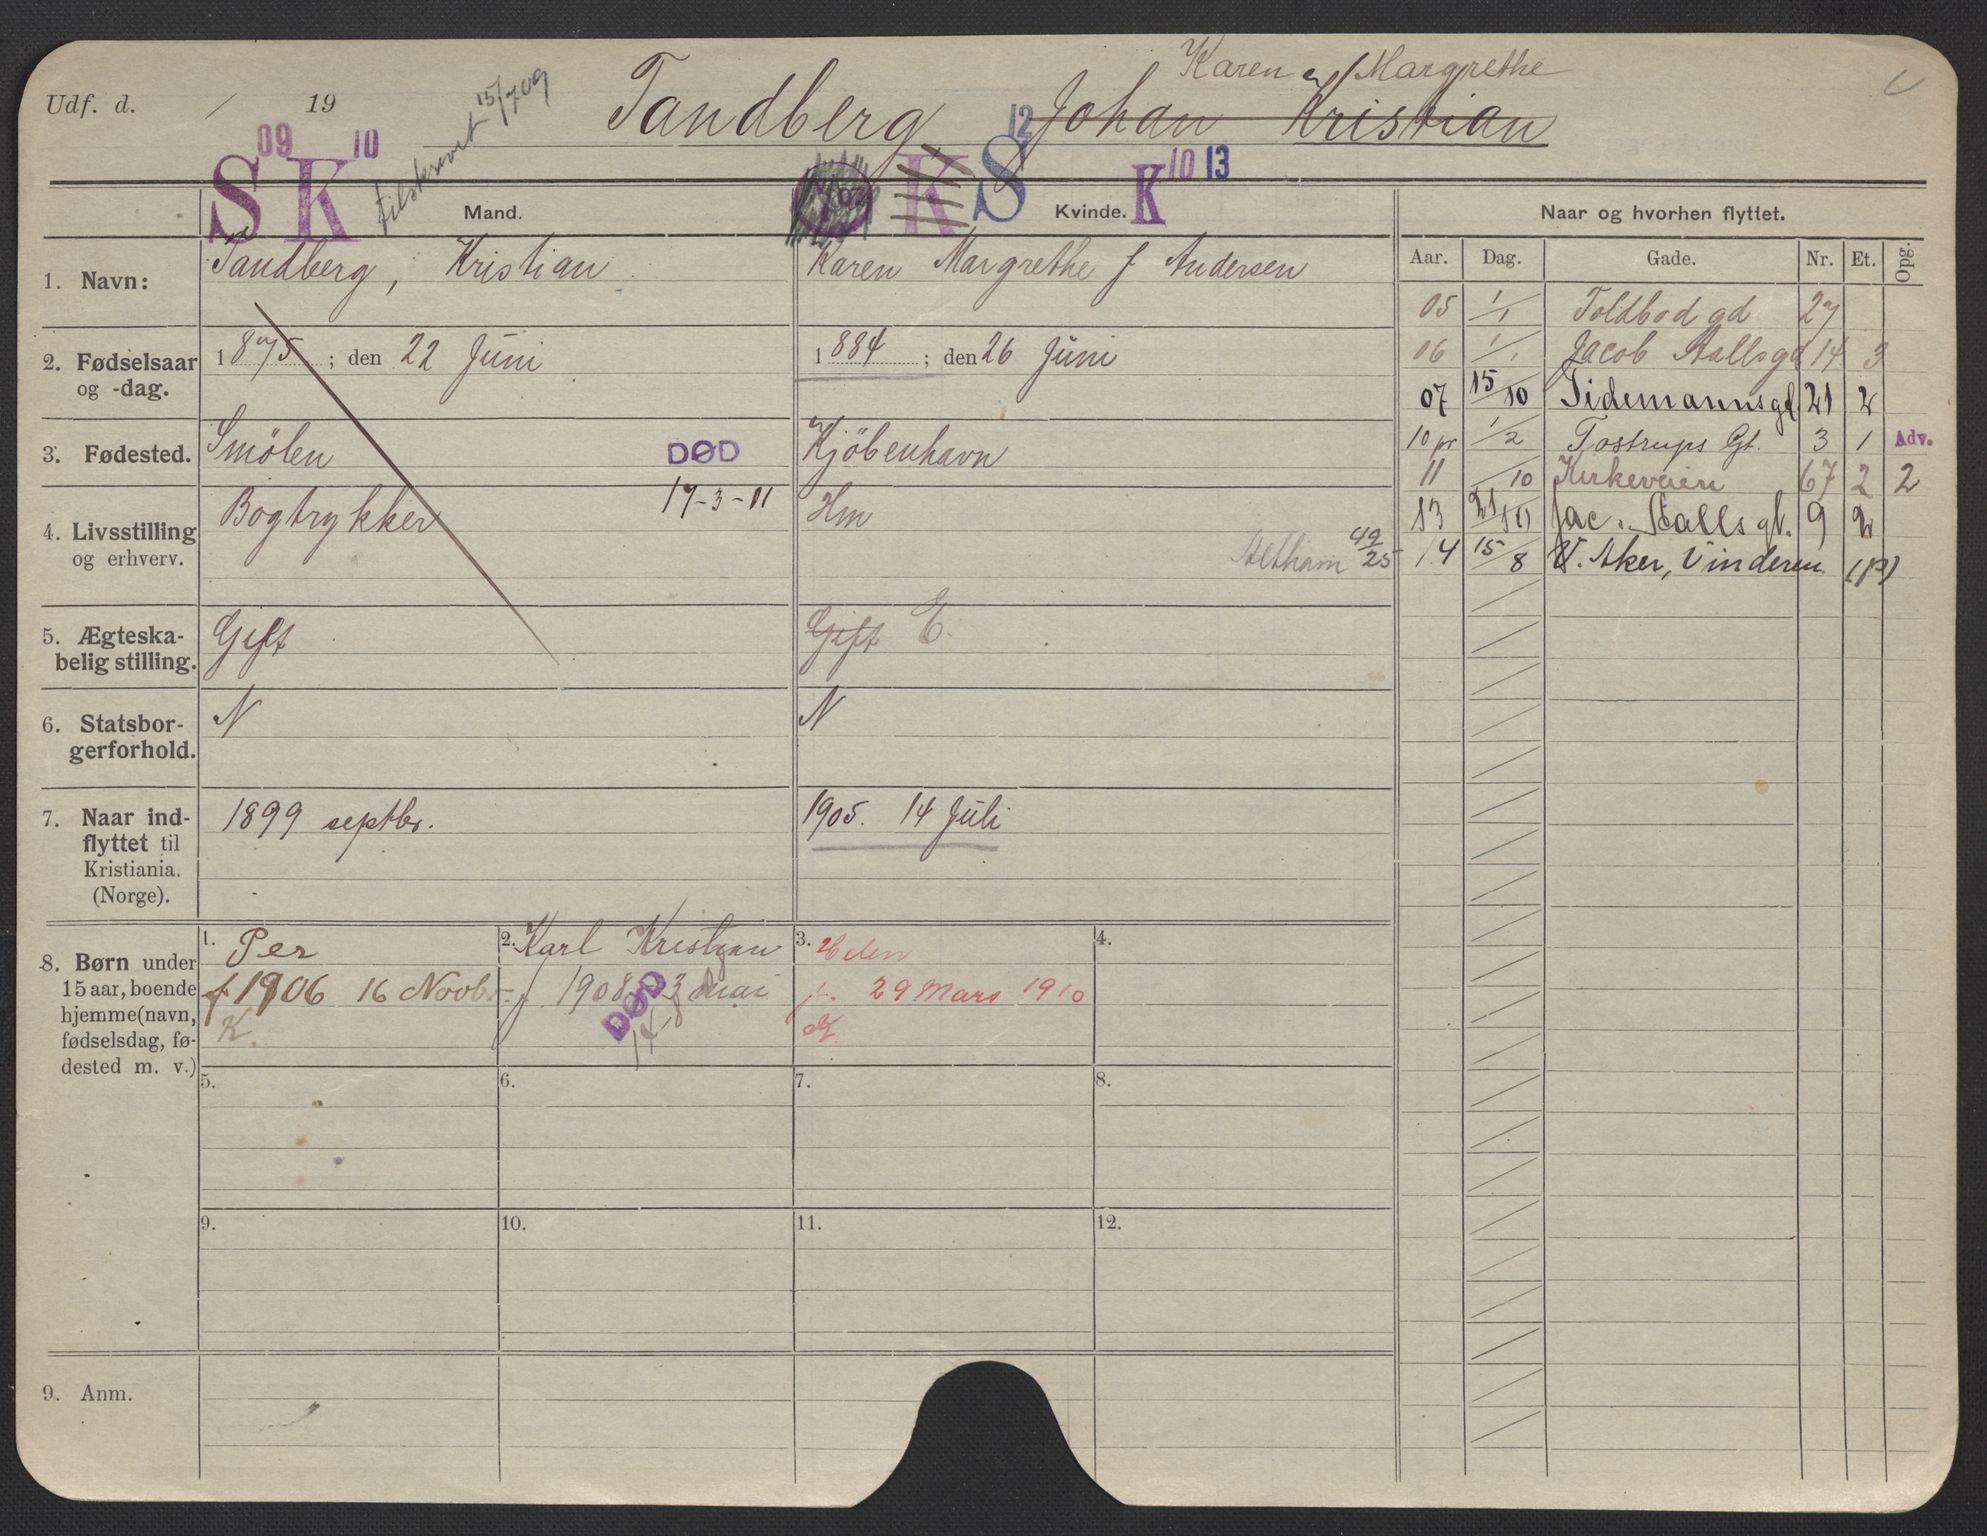 Karen Margrethe
Udf. d. / 19
tilskrevet 15/7 09
Tandberg, Johan Kristian
S 09 K 10
K S 12 K 10 13
Mand.
Kvinde.
Naar og hvorhen flyttet.
Aar. Dag. Gade. Nr. Et. Opg.
1. Navn:
Tandberg, Kristian
Karen Margrethe f Andersen
2. Fødselsaar og -dag.
1875; den 22 Juni
1884; den 26 Juni
3. Fødested.
Smølen
DØD
17-3-11
Kjøbenhavn
4. Livsstilling og erhverv.
Bogtrykker
Hm
49/25
5. Ægteska-
belig stilling.
Gift
Gift E.
6. Statsbor-
gerforhold.
N
N
7. Naar ind-
flyttet til
Kristiania.
(Norge).
1899 septbr.
1905. 14 Juli
05 1/1 Toldbod gd 27
06 1/1 Jacob Aallsgd 14 3
07 15/10 Tidemannsgt 21 2
10 pr 1/2 Tostrups Gt. 3 1 Adv.
11 /10 Kirkeveien 67 2 2
13 21/10 Jac. Aallsgt. 9 2
14 15/8 V. Aker, Vinderen (P)
8. Børn under
15 aar, boende
hjemme (navn,
fødselsdag, fø-
dested m. v.)
1. Per
f 1906 16 Novbr.
K.
2. Karl Kristian
f 1908 3 mai
DØD
3. Helen
f. 29 Mars 1910
K.
4.
5.
6.
7.
8.
9.
10.
11.
12.
9. Anm.